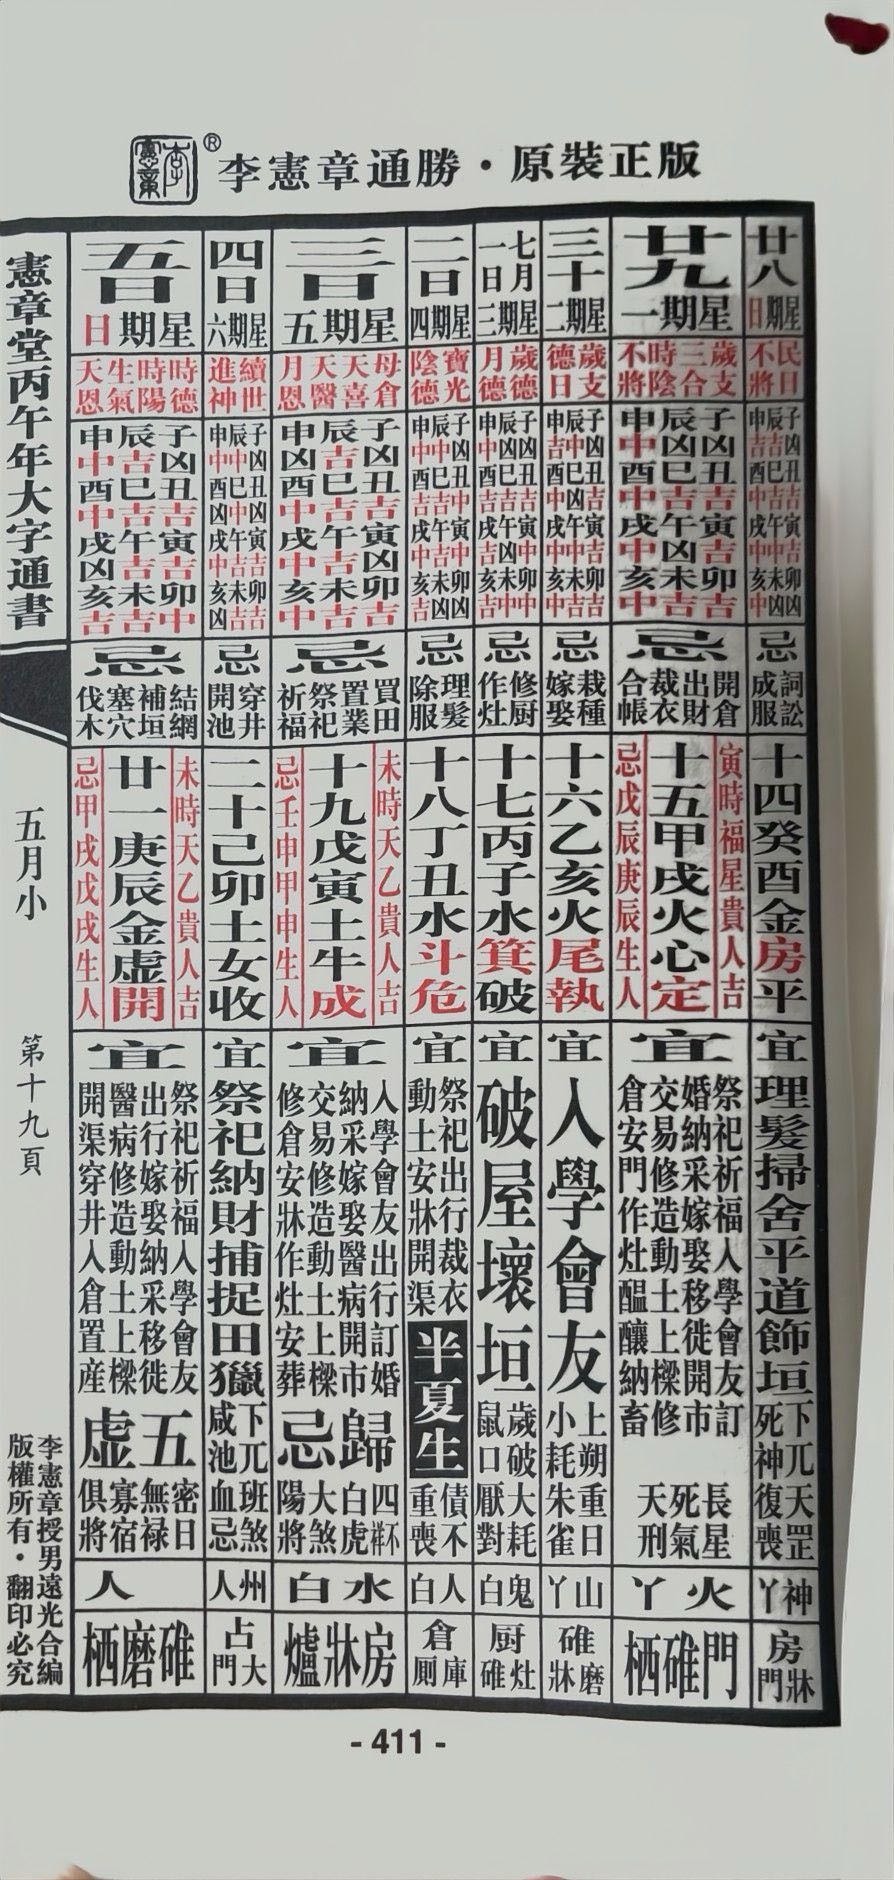 李憲章
®
李憲章通勝·原裝正版
廿八
星期日
民日
不將
忌
詞訟
成服
十四癸酉金房平
宜
理髮掃舍平道飾垣
下兀天罡
死神復喪
神丫
房牀門
廿九
星期一
歲支
三合
時陰
不將
子凶丑吉寅吉卯吉
辰凶巳吉午凶未吉
申中酉中戌中亥中
忌
開倉
出財
裁衣
合帳
寅時福星貴人吉
十五甲戌火心定
忌戊辰庚辰生人
宜
祭祀祈福入學會友訂
婚納采嫁娶移徙開市
交易修造動土上樑修
倉安門作灶醞釀納畜
長星
死氣
天刑
火丫
門碓栖
三十
星期二
歲支
德日
忌
栽種
嫁娶
十六乙亥火尾執
宜
入學會友
上朔重日
小耗朱雀
山丫
碓磨牀
七月一日
星期三
歲德
月德
忌
修厨
作灶
十七丙子水箕破
宜
破屋壞垣
歲破大耗
鼠口厭對
鬼白
厨灶碓
二日
星期四
寶光
陰德
忌
理髮
除服
十八丁丑水斗危
宜
祭祀出行裁衣
動土安牀開渠
半夏生
債不
重喪
人白
倉庫厠
三日
星期五
母倉
天喜
天醫
月恩
子凶丑吉寅凶卯吉
辰吉巳吉午吉未吉
申凶酉中戌中亥中
忌
買田
置業
祭祀
祈福
未時天乙貴人吉
十九戊寅土牛成
忌壬申甲申生人
宜
入學會友出行訂婚
納采嫁娶醫病開市
交易修造動土上樑
修倉安牀作灶安葬
歸忌
四不祥
白虎
大煞
陽將
水白
房牀爐
四日
星期六
續世
進神
忌
穿井
開池
二十己卯土女收
宜
祭祀納財捕捉田獵
下兀班煞
咸池血忌
州人
占大門
五日
星期日
時德
時陽
生氣
天恩
子凶丑吉寅吉卯中
辰吉巳吉午吉未吉
申中酉中戌凶亥吉
忌
結網
補垣
塞穴
伐木
未時天乙貴人吉
廿一庚辰金虛開
忌甲戌戊戌生人
宜
祭祀祈福入學會友
出行嫁娶納采移徙
醫病修造動土上樑
開渠穿井入倉置產
五虛
密日
無祿
寡宿
俱將
人
碓磨栖
憲章堂丙午年大字通書
五月小
第十九頁
李憲章授男遠光合編
版權所有·翻印必究
- 411 -